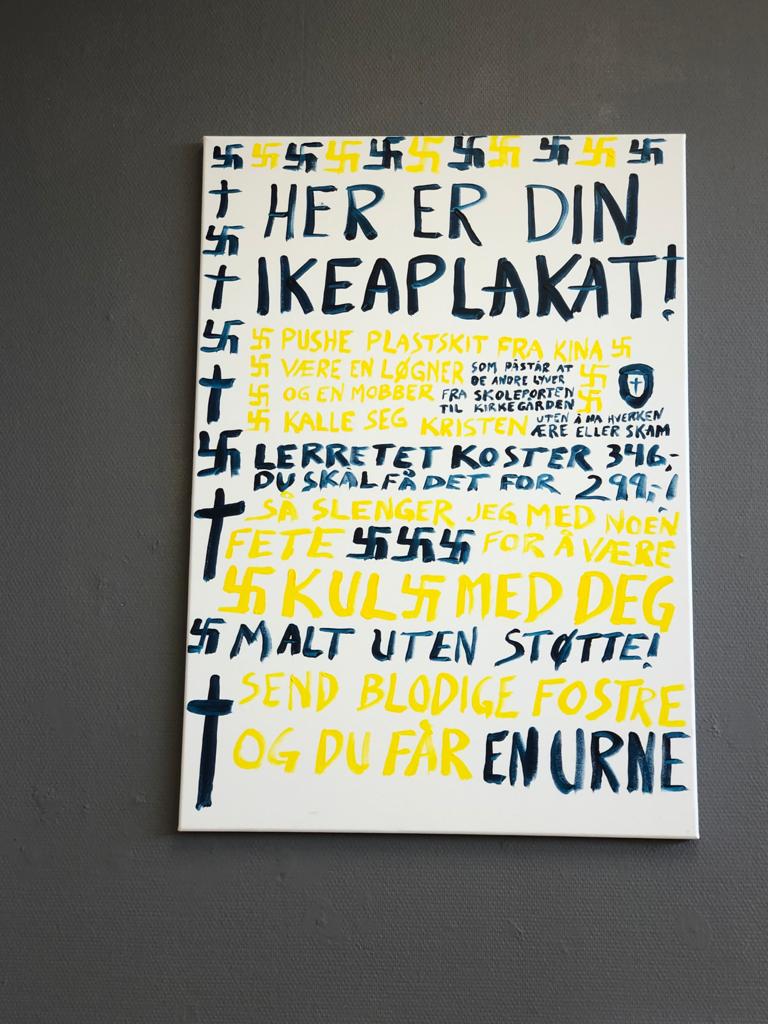 HER ER DIN
IKEAPLAKAT!
PUSHE PLASTSKIT FRA KINA
VÆRE EN LØGNER SOM PÅSTÅR AT
DE ANDRE LYVER
OG EN MOBBER FRA SKOLEPORTEN
TIL KIRKEGÅRDEN
KALLE SEG KRISTEN UTEN Å HA HVERKEN
ÆRE ELLER SKAM
LERRETET KOSTER 346,-
DU SKAL FÅ DET FOR 299,-!
SÅ SLENGER JEG MED NOEN
FETE 卐卐卐 FOR Å VÆRE
KUL MED DEG
MALT UTEN STØTTE!
SEND BLODIGE FOSTRE
OG DU FÅR EN URNE